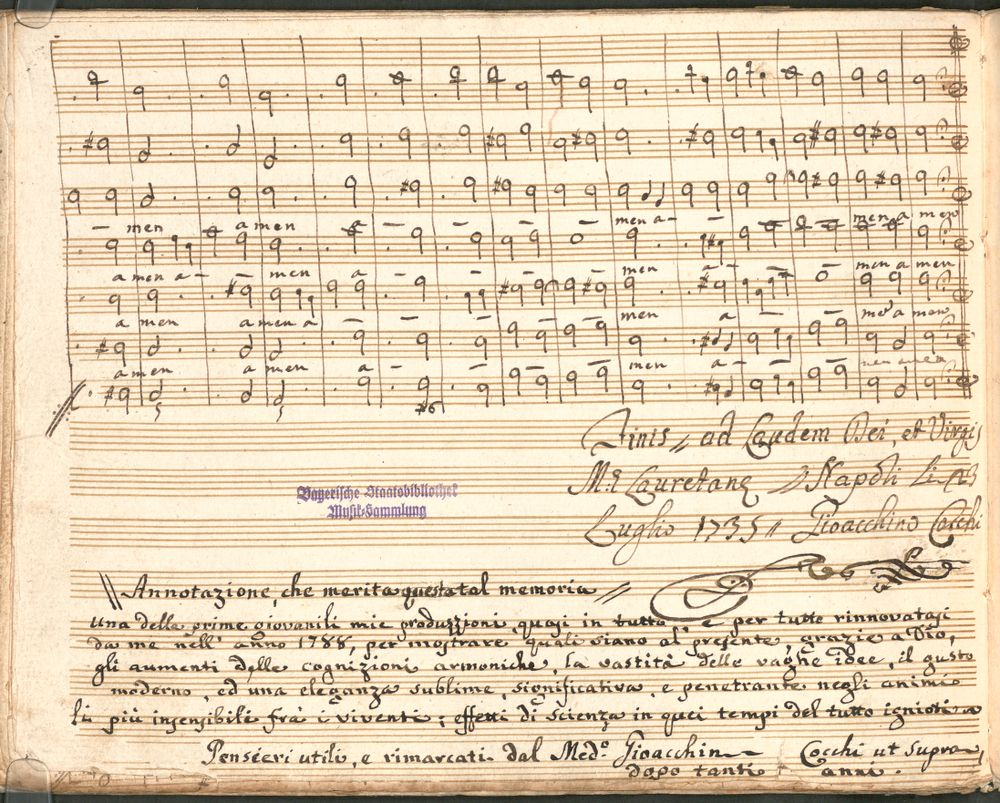 men a men men a - men a men
a men a - men a men men a men
a men a men a men a men
a men a men a men
Finis // ad Laudem Dei, et Virgis
M.ę Lauretanę // Napoli li 23
Luglio 1735 // Gioacchino Cocchi
Bayerische Staatsbibliothek
Musik-Sammlung
// Annotazione, che merita questa tal memoria //
una della prime giovanili mie produzzioni, quasi in tutto, e per tutto rinnovatasi
da me nell' anno 1788, per mostrare quali siano al presente, grazie a Dio,
gli aumenti delle cognizioni armoniche, la vastità delle vaghe idee, il gusto
moderno, ed una eleganza sublime, significativa, e penetrante negli animi
li più insensibili frà i viventi; effetti di scienza in quei tempi del tutto ignioti a
Pensieri utili, e rimarcati dal Med.º Gioacchin Cocchi ut supra
dopo tanti anni.